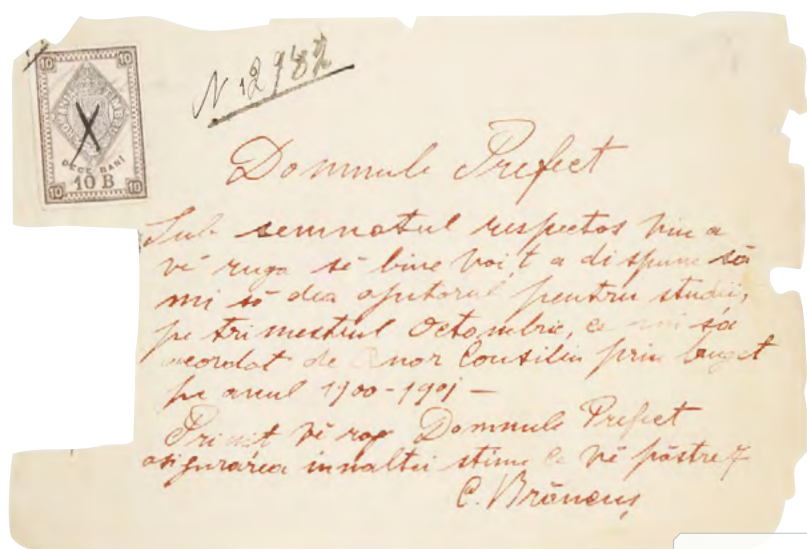 N 12982
10 10
ROMANIA TIMBRU
DECE BANI
10 B
10 10
Domnule Prefect
Sub semnatul respectos vin a
vĕ ruga să bine voiț a dispune să
mi să dea ajutorul pentru studii,
pe trimestrul Octombrie, ce mi sa
acordat de Onor Consiliu prin buget
pe anul 1900-1901 —
Primit vĕ rog Domnule Prefect
asigurarea innaltei stime ce vĕ păstrez
C. Brâncuș